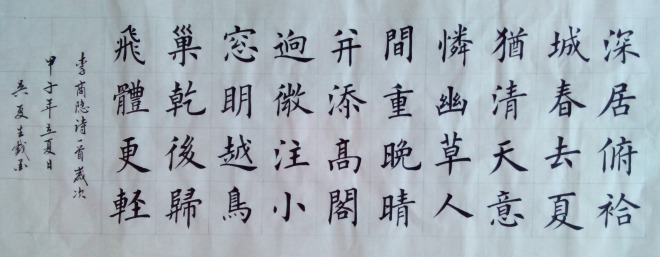 深居俯袷
城春去夏
猶清天意
憐幽草人
間重晚晴
并添髙閣
逈微注小
窓明越鳥
巢乾後歸
飛體更軽
李商隐诗一首歲次
甲子年立夏日
吴夏生